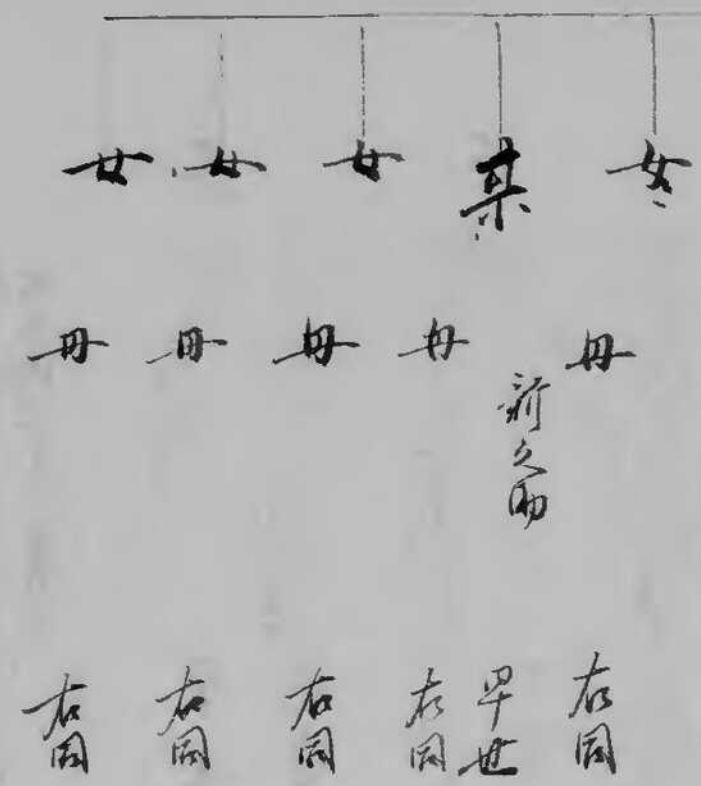 女
母
右同
某
新之助
早世
母
右同
女
母
右同
女
母
右同
女
母
右同